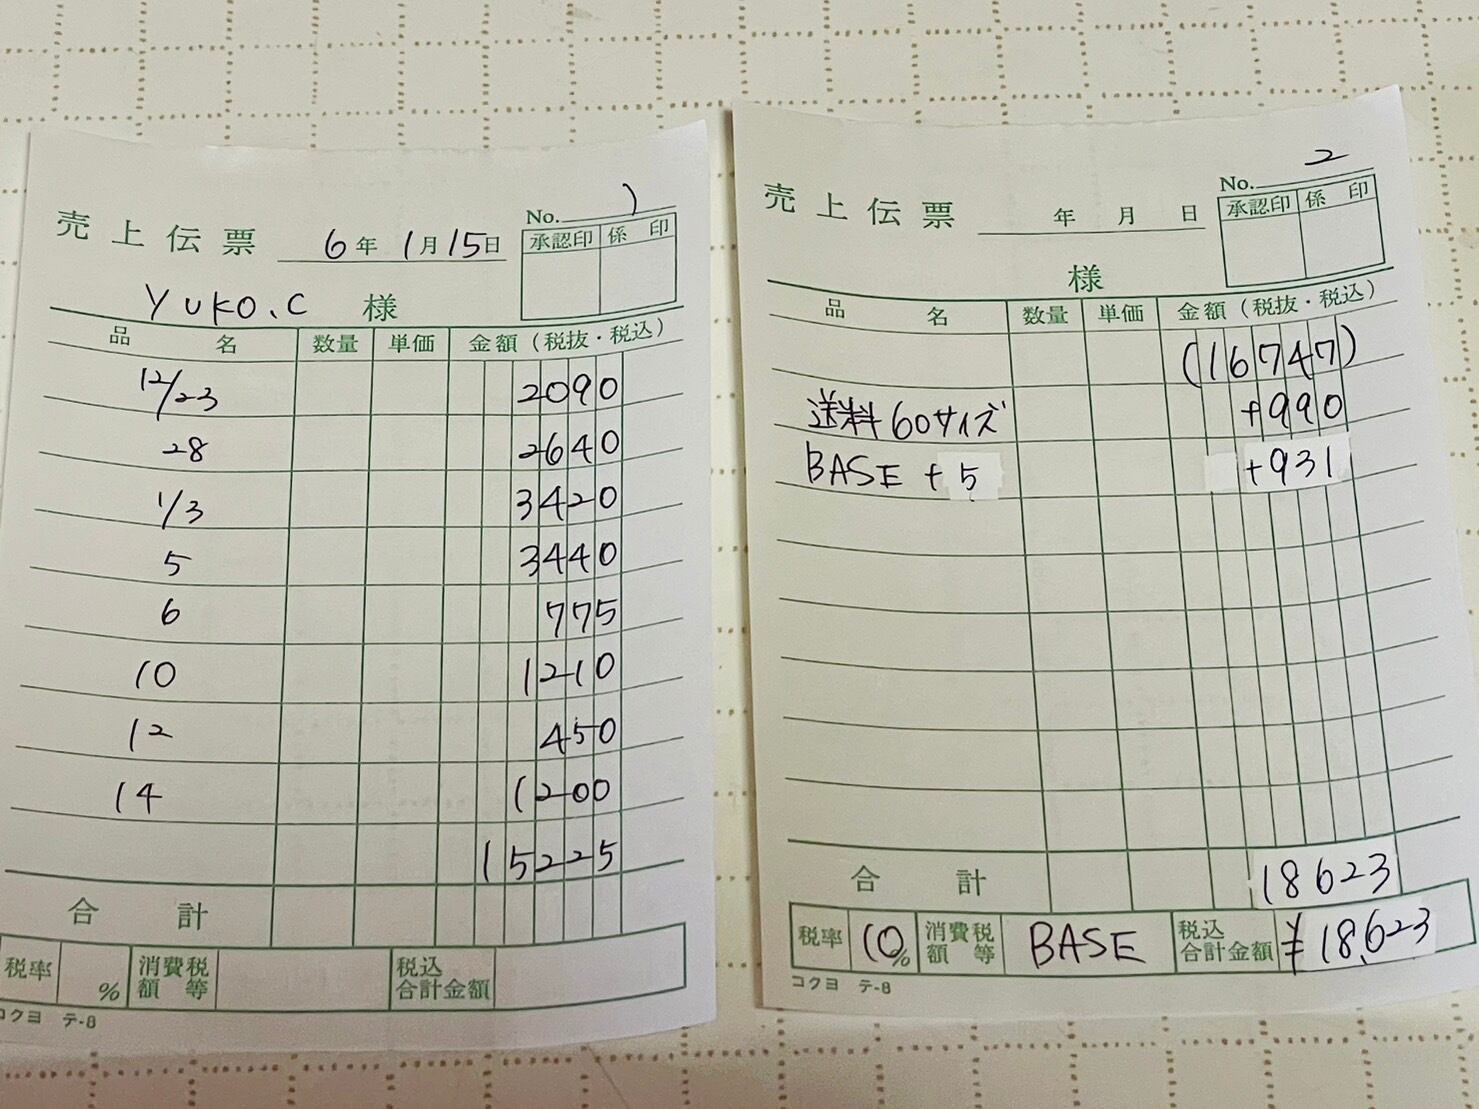 No. 1
売上伝票 6年 1月 15日
承認印 係印
Yuko.C 様
品名 数量 単価 金額(税抜・税込)
12/23 2090
28 2640
1/3 3420
5 3440
6 775
10 1210
12 450
14 1200
15225
合計
税率 % 消費税額等 税込合計金額
コクヨ テ-8
No. 2
売上伝票 年 月 日
承認印 係印
様
品名 数量 単価 金額(税抜・税込)
(16747)
送料60サイズ +990
BASE +5 +931
合計 18623
税率 10% 消費税額等 BASE 税込合計金額 ¥18,623
コクヨ テ-8